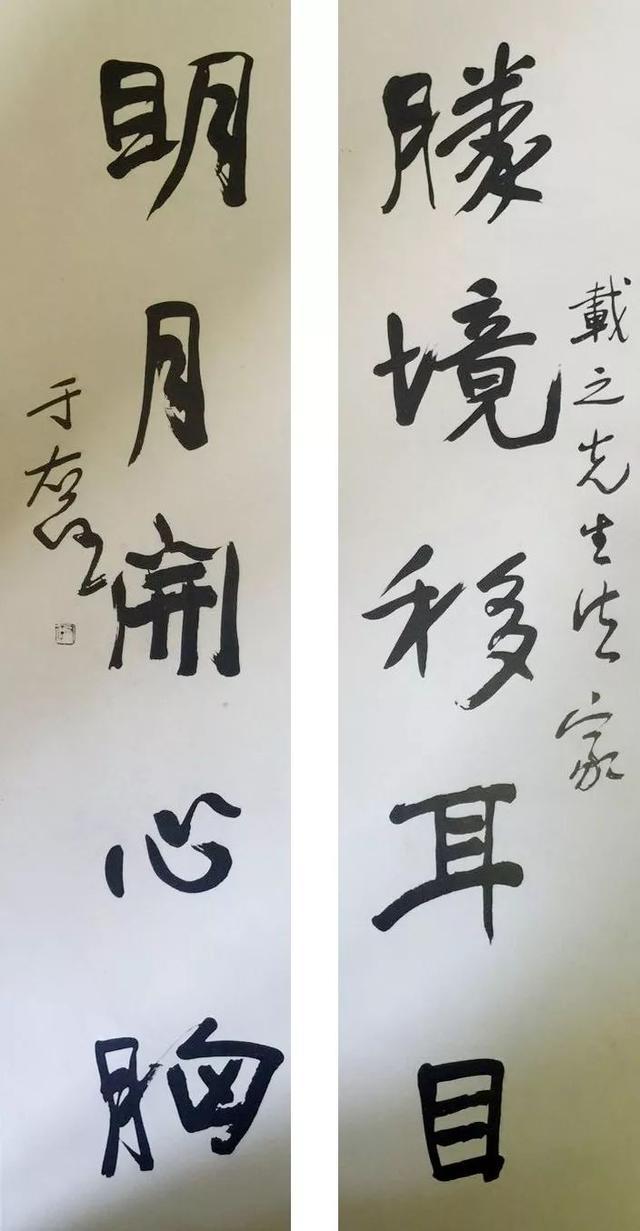 載之先生法家
勝境移耳目
明月開心胸
于右任